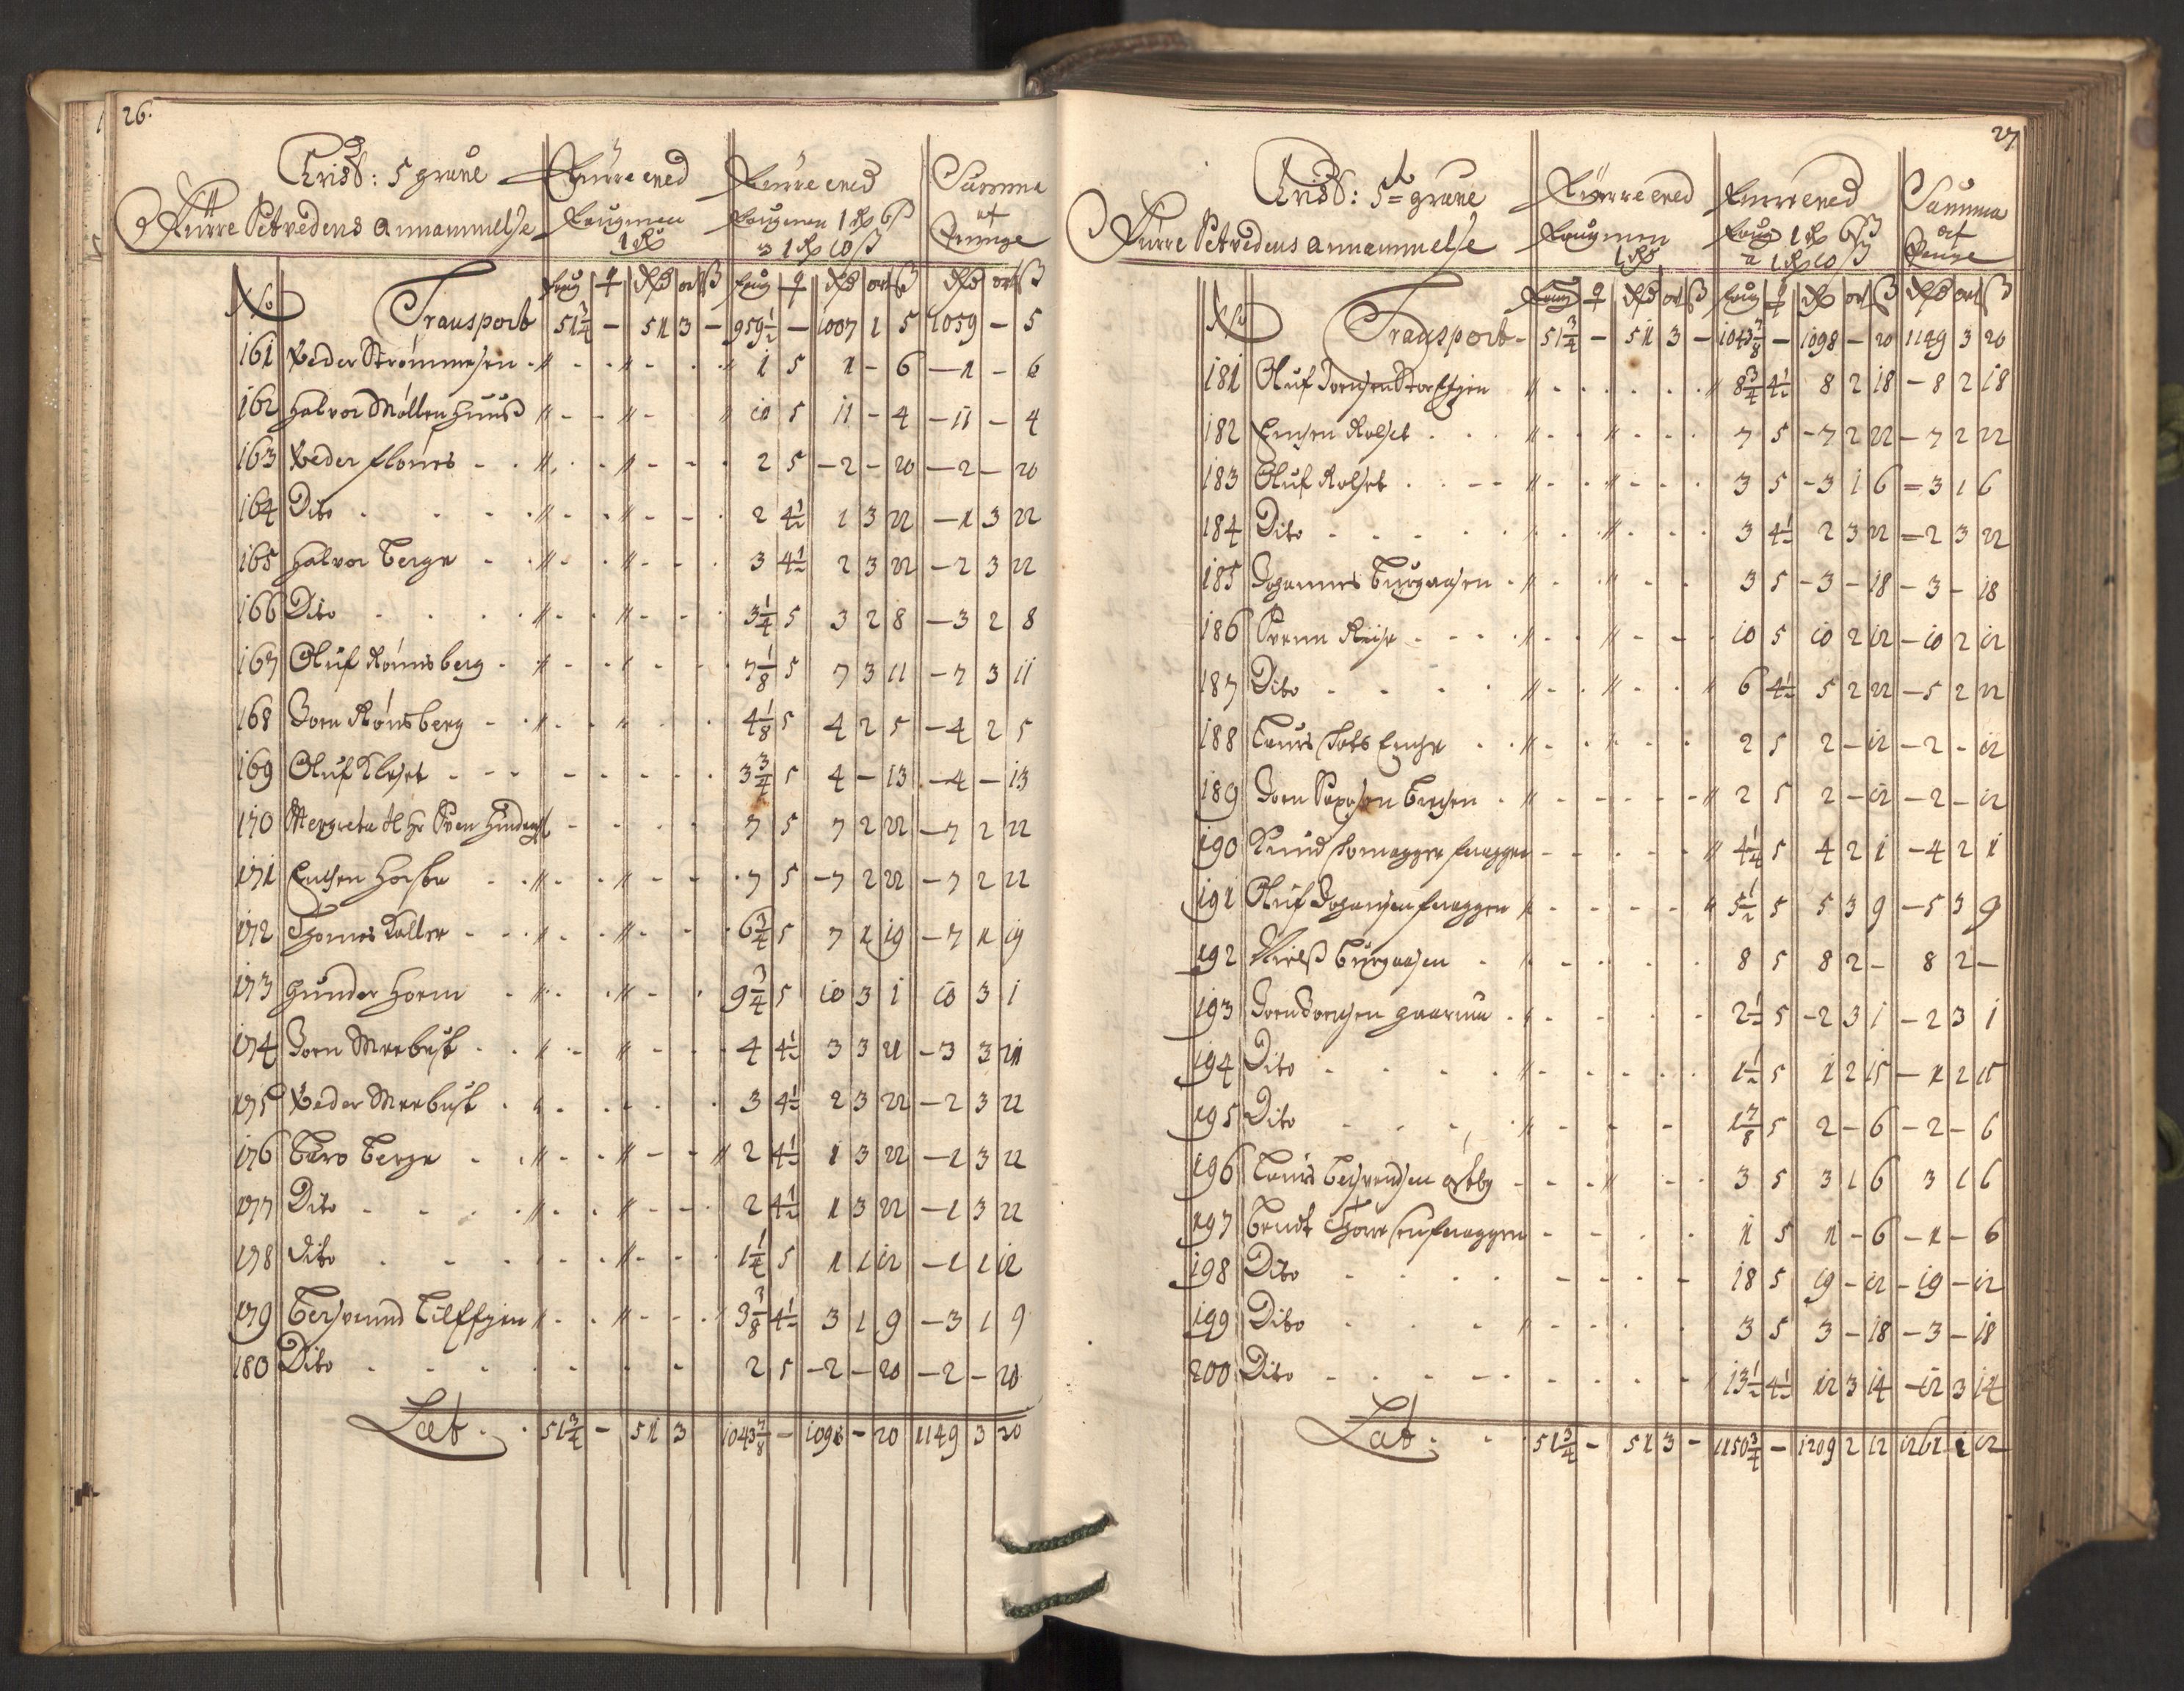 26.
Christ: 5 grune
Furre ened
Furre ened
Summa
Furre Setvedens Annammelse
Faugmen
Faugnen 1 Rd 6 ß
af
1 Rd
a 1 Rd 10 ß
Penge
No Faug q Rd ort ß Faug q Rd ort ß Rd ort ß
Transport 51 3/4 - 51 3 - 959 1/2 - 1007 1 5 1059 - 5
161 Peder Strømmesen 1 5 1 - 6 - 1 - 6
162 Halvor Møllenhuus 10 5 11 - 4 - 11 - 4
163 Peder Flønes 2 5 - 2 - 20 - 2 - 20
164 Dito 2 4 1/2 1 3 22 - 1 3 22
165 Halvor Berge 3 4 1/2 2 3 22 - 2 3 22
166 Dito 3 1/4 5 3 2 8 - 3 2 8
167 Oluf Rønsberg 7 1/8 5 7 3 11 - 7 3 11
168 Joen Rønsberg 4 1/8 5 4 2 5 - 4 2 5
169 Oluf Klefset 3 3/4 5 4 - 13 - 4 - 13
170 Mergreta Sl Hr Sven 7 5 7 2 22 - 7 2 22
171 7 5 - 7 2 22 - 7 2 22
172 Thomes Kaller 6 3/4 5 7 1 19 - 7 1 19
173 Gunder Horm 9 3/4 5 10 3 1 10 3 1
174 Joen Meebust 4 4 1/2 3 3 21 - 3 3 21
175 Peder Meebust 3 4 1/2 2 3 22 - 2 3 22
176 Baro Berge 2 4 1/2 1 3 22 - 1 3 22
177 Dito 2 4 1/2 1 3 22 - 1 3 22
178 Dito 1 1/4 5 1 1 12 - 1 1 12
179 3 3/8 4 1/2 3 1 9 - 3 1 9
180 Dito 2 5 - 2 - 20 - 2 - 20
Lat 51 3/4 - 51 3 1043 7/8 - 1098 - 20 1149 3 20
27
Christ: 5te grune
Furre ened
Furre ened
Summa
Furre Setvedens Annammelse
Faugmen
Faug 1 Rd 6 ß
af
1 Rd
a 1 Rd 10 ß
Penge
No Faug q Rd ort ß Faug q Rd ort ß Rd ort ß
Transport 51 3/4 - 51 3 - 1043 7/8 - 1098 - 20 1149 3 20
181 Oluf Joensen 8 3/4 4 1/2 8 2 18 - 8 2 18
182 Rolset 7 5 - 7 2 22 - 7 2 22
183 Oluf Rolset 3 5 - 3 1 6 = 3 1 6
184 Dito 3 4 1/2 2 3 22 = 2 3 22
185 Johannes Burgaasen 3 5 - 3 - 18 - 3 - 18
186 Svenn Riise 10 5 10 2 12 - 10 2 12
187 Dito 6 4 1/2 5 2 22 - 5 2 22
188 Laurs 2 5 2 - 12 - 2 - 12
189 Joen 2 5 2 - 12 - 2 - 12
190 Knud 4 1/4 5 4 2 1 - 4 2 1
191 Oluf Johansen 5 1/2 5 5 3 9 - 5 3 9
192 Nielß Burgaasen 8 5 8 2 - 8 2 -
193 Joen Joensen 2 1/2 5 - 2 3 1 - 2 3 1
194 Dito 1 1/2 5 1 2 15 - 1 2 15
195 Dito 1 7/8 5 2 - 6 - 2 - 6
196 Laurs 3 5 3 1 6 3 1 6
197 Bendt 1 5 1 - 6 - 1 - 6
198 Dito 18 5 19 - 12 - 19 - 12
199 Dito 3 5 3 - 18 - 3 - 18
200 Dito 13 1/2 4 1/2 12 3 14 - 12 3 14
Lat 51 3/4 - 51 3 - 1150 3/4 - 1209 2 12 1261 1 12